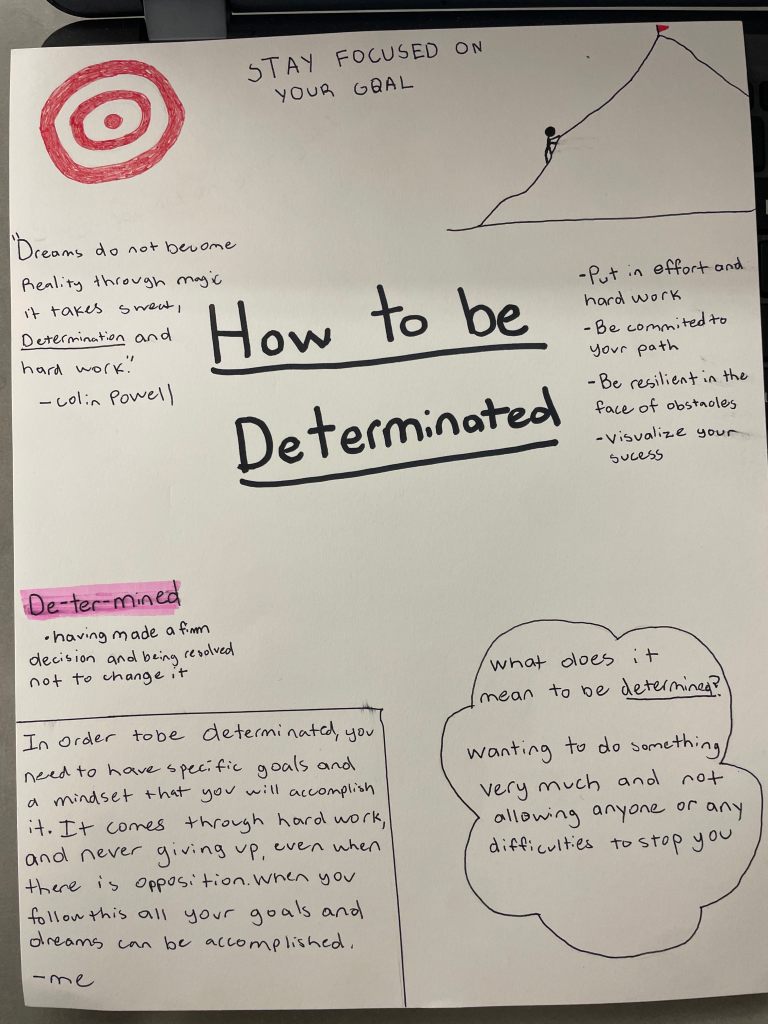 STAY FOCUSED ON
YOUR GOAL
"Dreams do not become
Reality through magic
it takes sweat,
Determination and
hard work."
- Colin Powell
How to be
Determinated
- Put in effort and
hard work
- Be commited to
your path
- Be resilient in the
face of obstacles
- Visualize your
sucess
De-ter-mined
• having made a firm
decision and being resolved
not to change it
In order to be determinated, you
need to have specific goals and
a mindset that you will accomplish
it. It comes through hard work,
and never giving up, even when
there is opposition. When you
follow this all your goals and
dreams can be accomplished.
- me
What does it
mean to be determined?
wanting to do something
very much and not
allowing anyone or any
difficulties to stop you